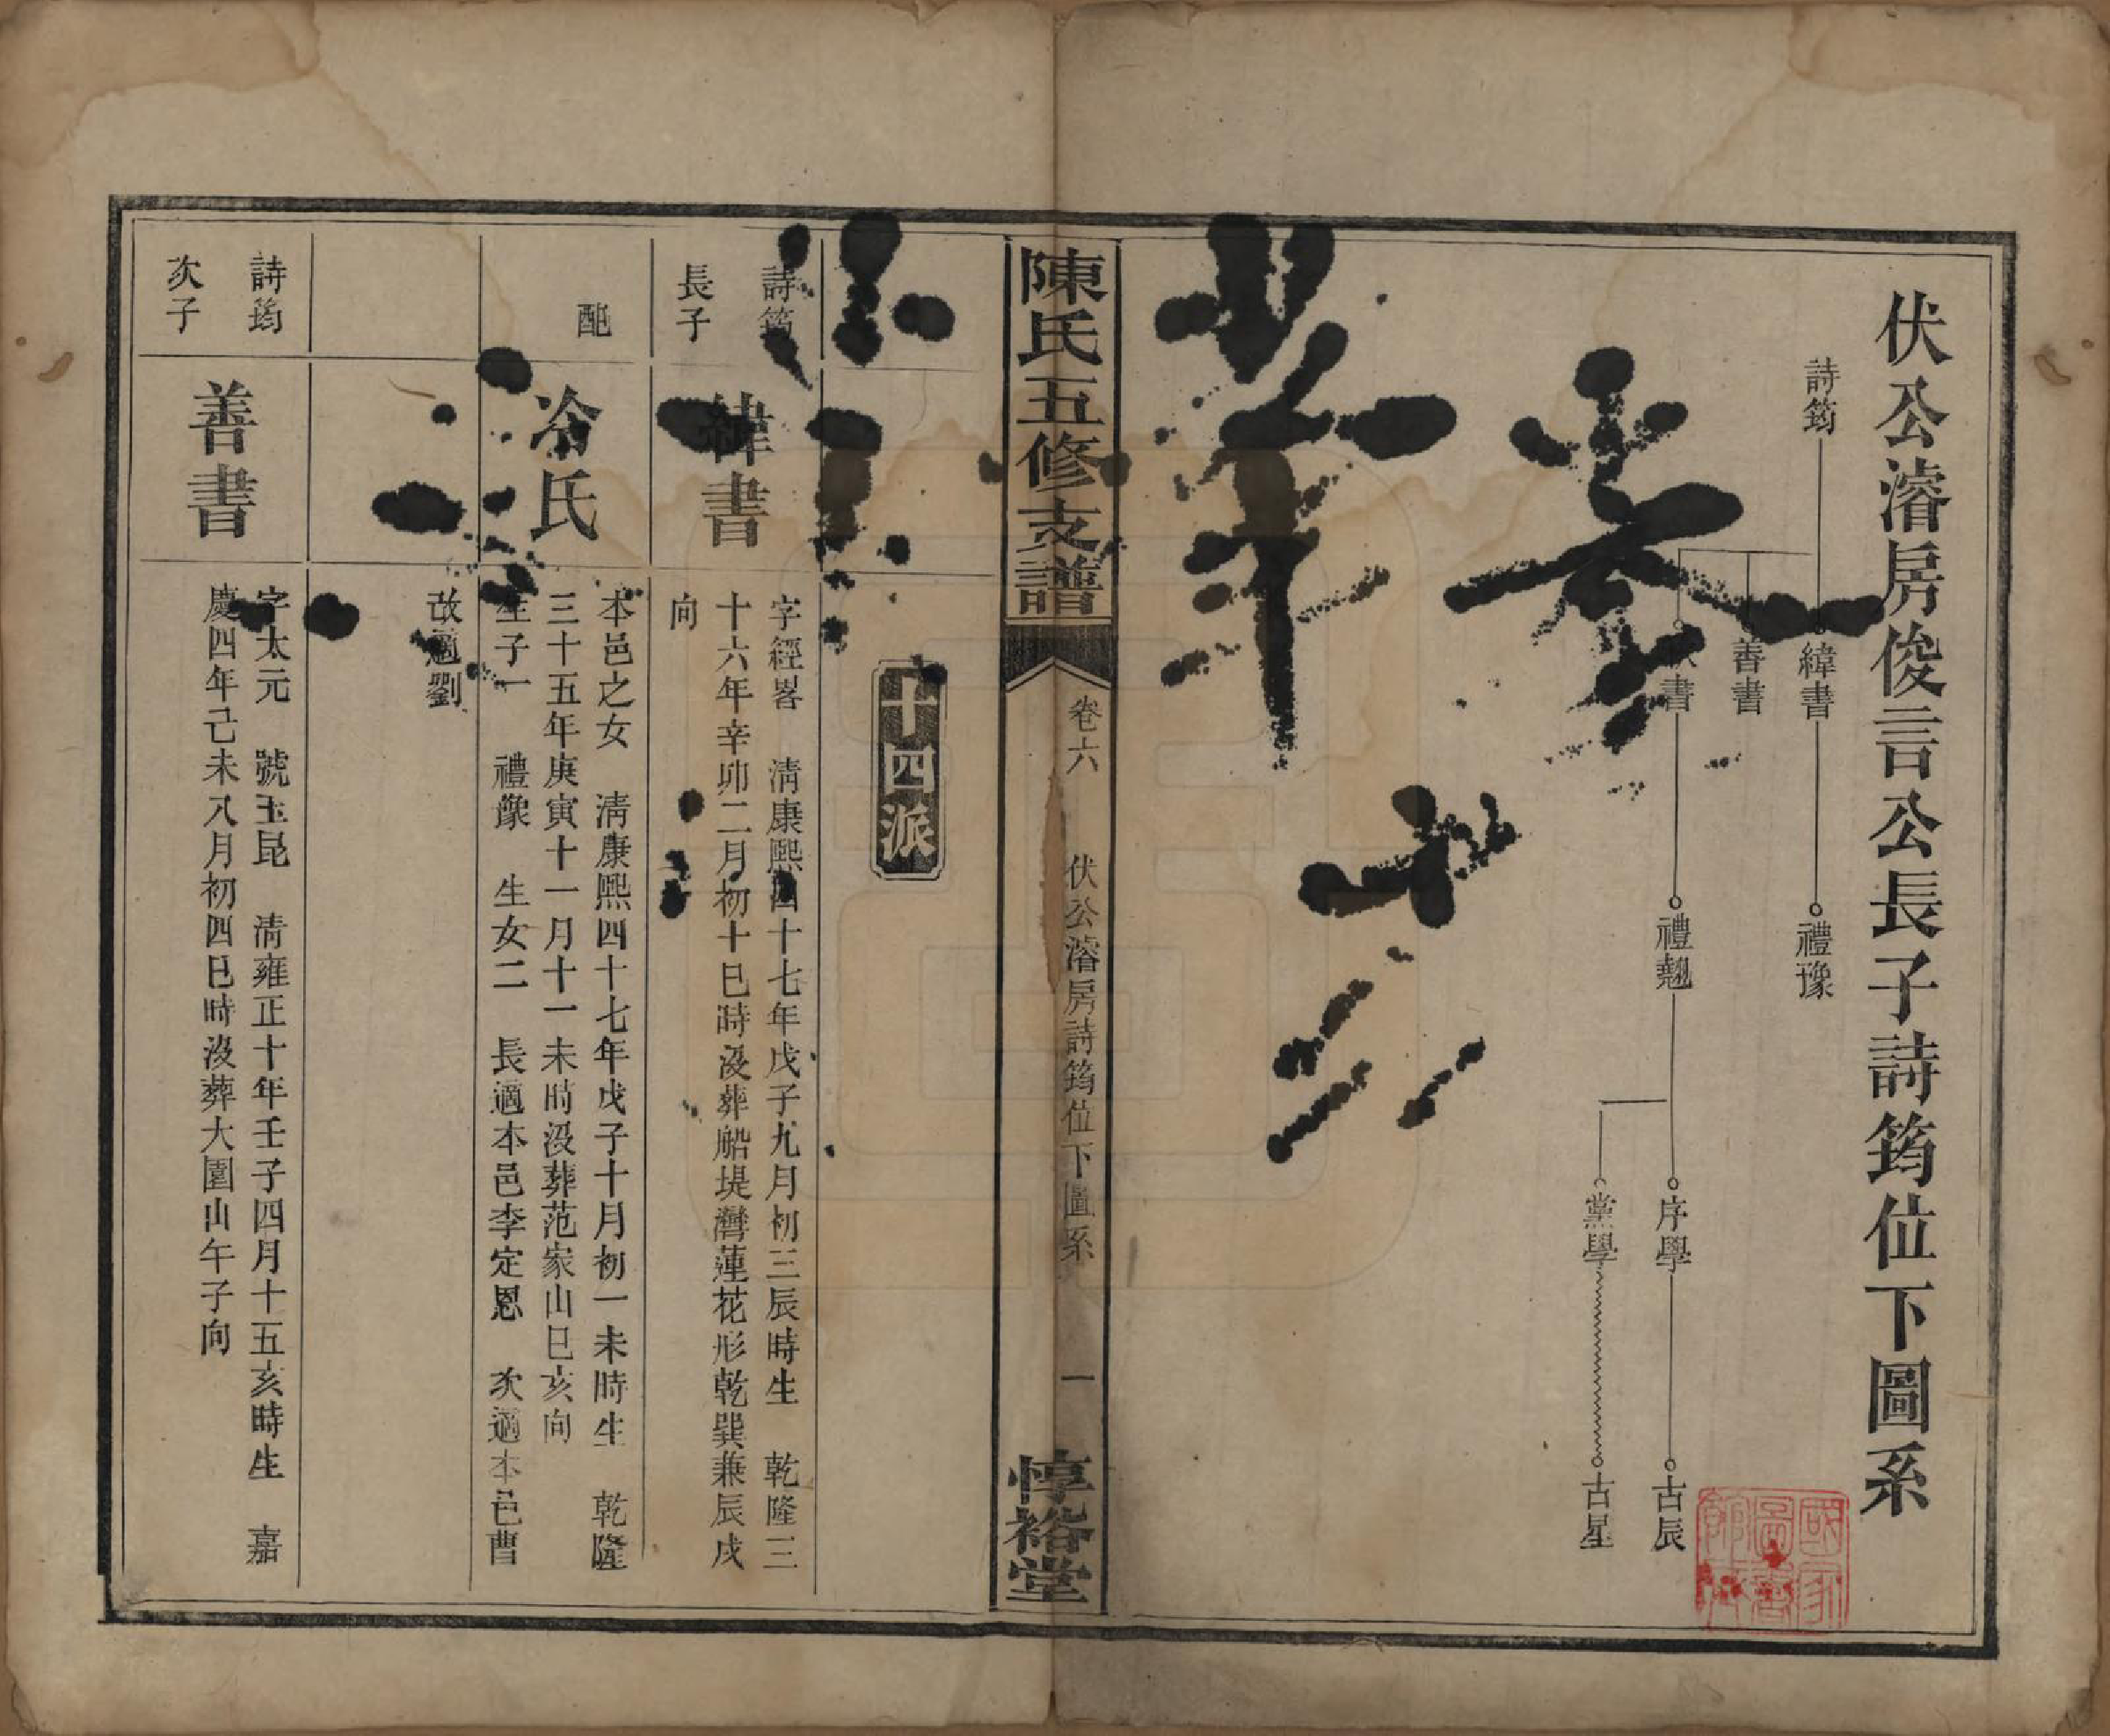 伏公濬房俊言公長子詩筠位下圖系
詩筠
緯書
禮豫
善書
書
禮翹
序學
古辰
黨學
古星
國家圖書館
陳氏五修支譜
卷六
伏公濬房詩筠位下圖系
一
惇裕堂
十四派
詩筠
長子
緯書
字經畧　清康熙四十七年戊子九月初三辰時生　乾隆三
十六年辛卯二月初十巳時沒葬船堤灣蓮花形乾巽兼辰戌
向
配
冷氏
本邑之女　清康熙四十七年戊子十月初一未時生　乾隆
三十五年庚寅十一月十一未時沒葬范家山巳亥向
生子一　禮豫　生女二　長適本邑李定恩　次適本邑曹
故適劉
詩筠
次子
善書
字太元　號玉昆　清雍正十年壬子四月十五亥時生　嘉
慶四年己未八月初四巳時沒葬大圍山午子向